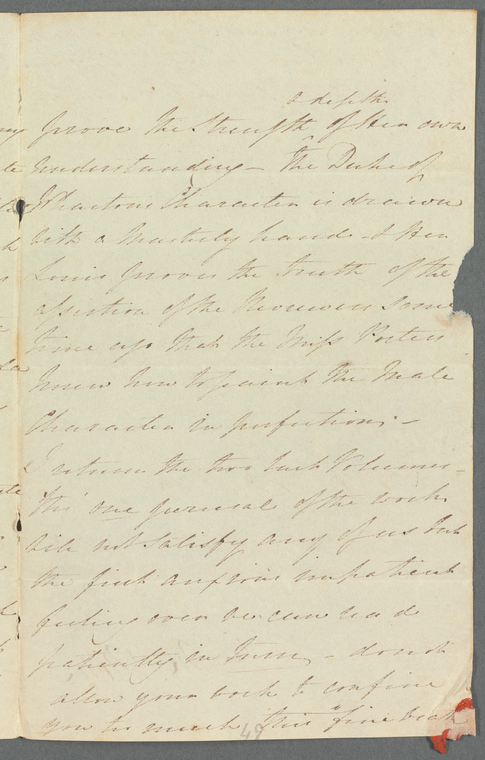 & depth
prove the Strength of Her own
Understanding – The Duke of
Whartons Character is drawn
with a Masterly hand – & Her
Louis proves the truth of the
assertion of the Reviewers some
time ago that the Miss Porters
knew how to paint the Male
Character in perfection; –
I return the two last Volumes –
tho' one perusal of the work
will not satisfy any of us but
the first anxious impatient
feeling over we can read
patiently in turn, – do not
allow your work to confine
you too much this fine
49